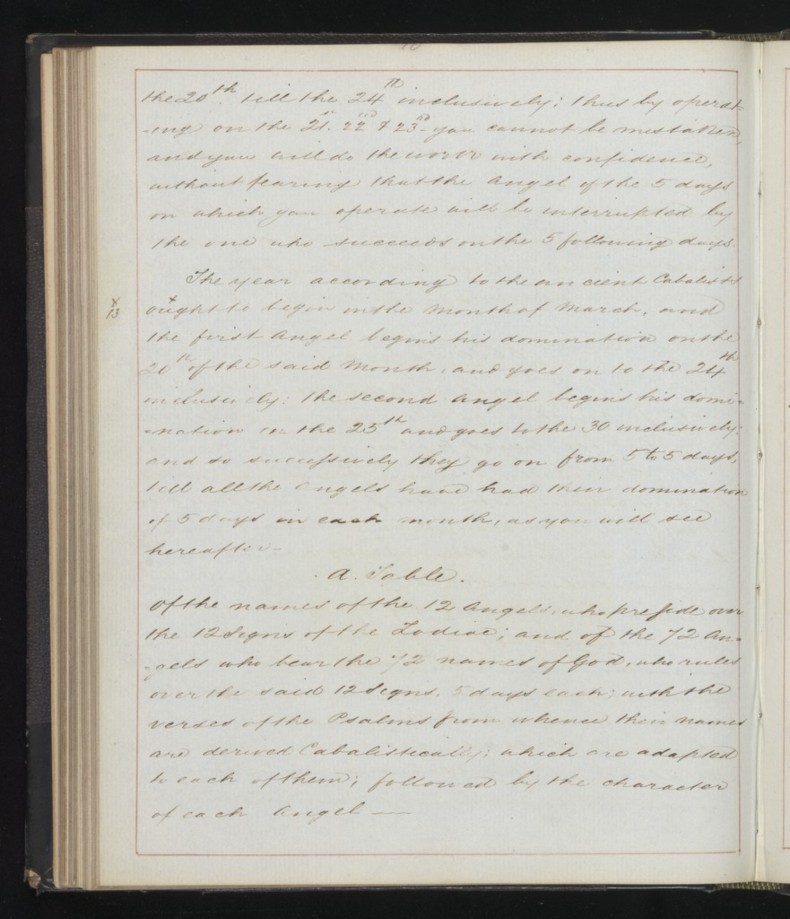 the 20th till the 24th inclusively; thus by operat-
-ing on the 21st 22nd & 23rd you cannot be mistaken,
and you will do the work with confidence,
without fearing that the Angel of the 5 days
on which you operate will be interrupted by
the one who succeeds on the 5 following days.
The year according to the ancient Cabalists
ought to begin in the month of March, and
the first Angel begins his domination on the
20th of the said month, and goes on to the 24th
inclusively: the second angel begins his domi-
-nation on the 25th and goes to the 30 inclusively:
and so successively they go on from 5 to 5 days,
till all the Angels have had their domination
of 5 days in each month, as you will see
hereafter—
A. Table.
Of the names of the 12 Angels, who preside over
the 12 Signs of the Zodiac; and of the 72 An-
-gels who bear the 72 names of God, who rules
over the said 12 Signs, 5 days each; with the
verses of the Psalms from whence their names
are derived Cabalistically; which are adapted
to each of them; followed by the character
of each Angel —